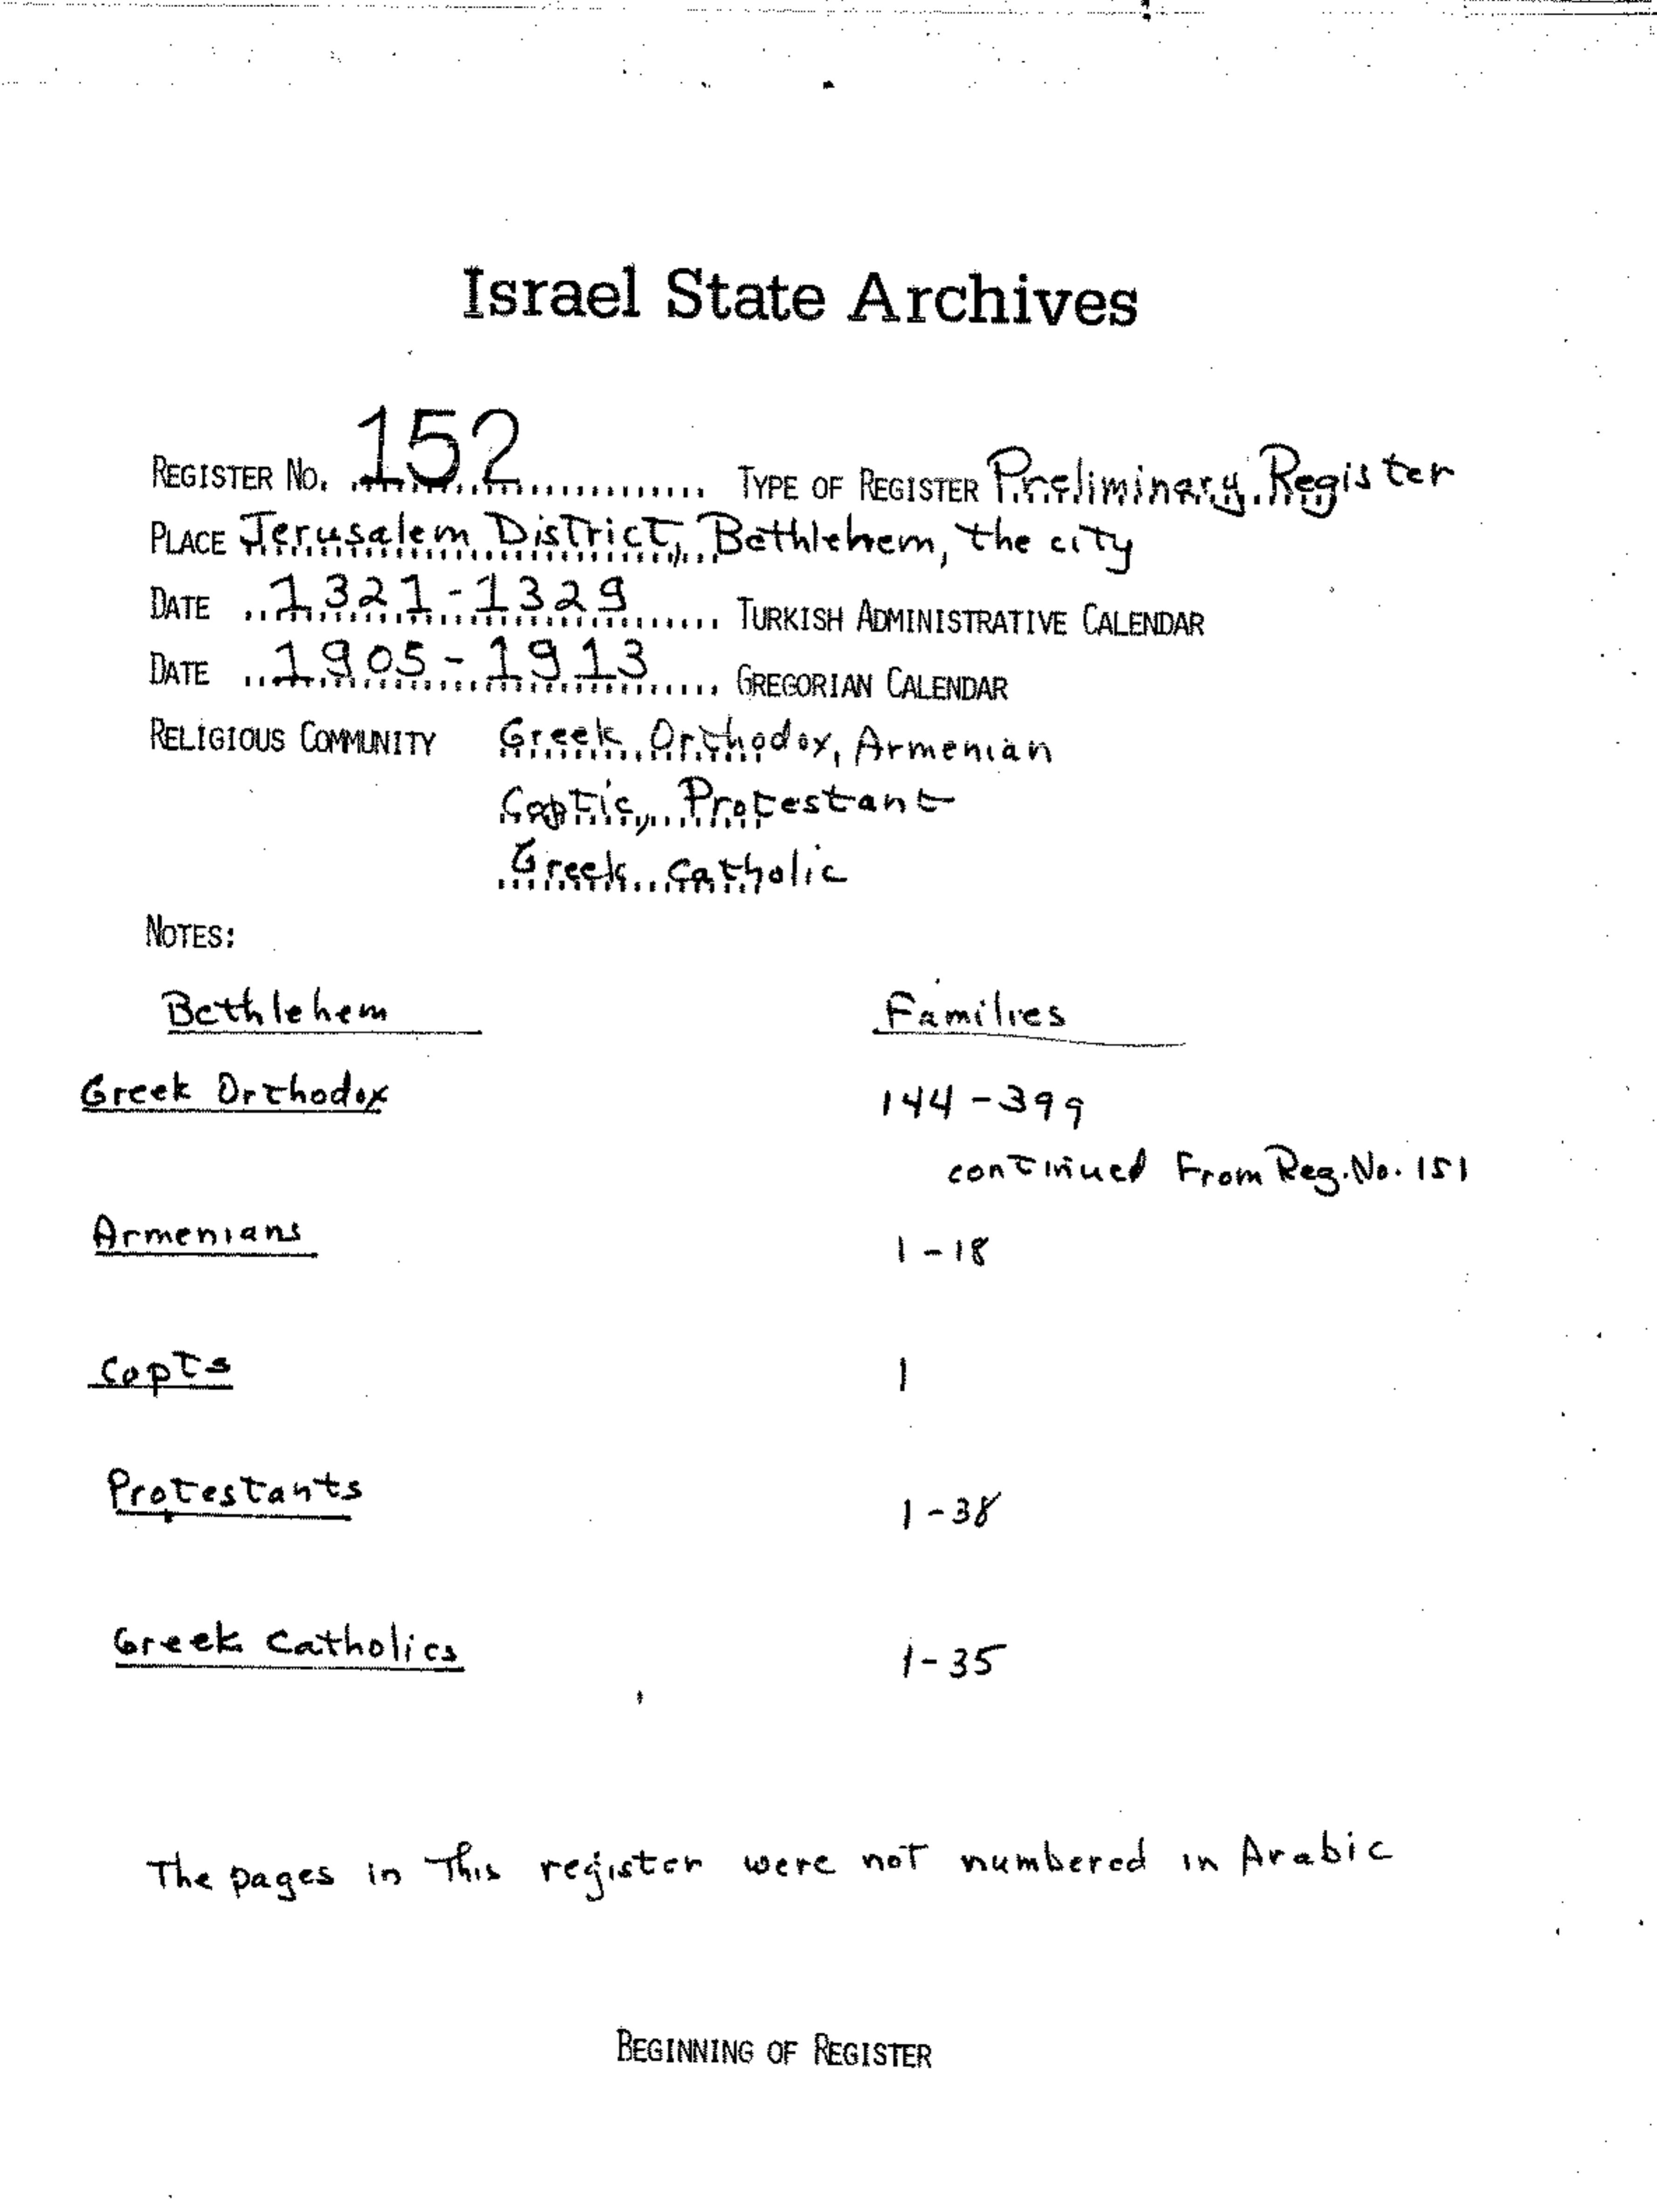 Israel State Archives
REGISTER NO. 152 TYPE OF REGISTER Preliminary Register
PLACE Jerusalem District, Bethlehem, the city
DATE 1321-1329 TURKISH ADMINISTRATIVE CALENDAR
DATE 1905-1913 GREGORIAN CALENDAR
RELIGIOUS COMMUNITY Greek Orthodox, Armenian
Coptic, Protestant
Greek Catholic
NOTES:
Bethlehem Families
Greek Orthodox 144-399
continued From Reg. No. 151
Armenians 1-18
Copts 1
Protestants 1-38
Greek Catholics 1-35
The pages in This register were not numbered in Arabic
BEGINNING OF REGISTER